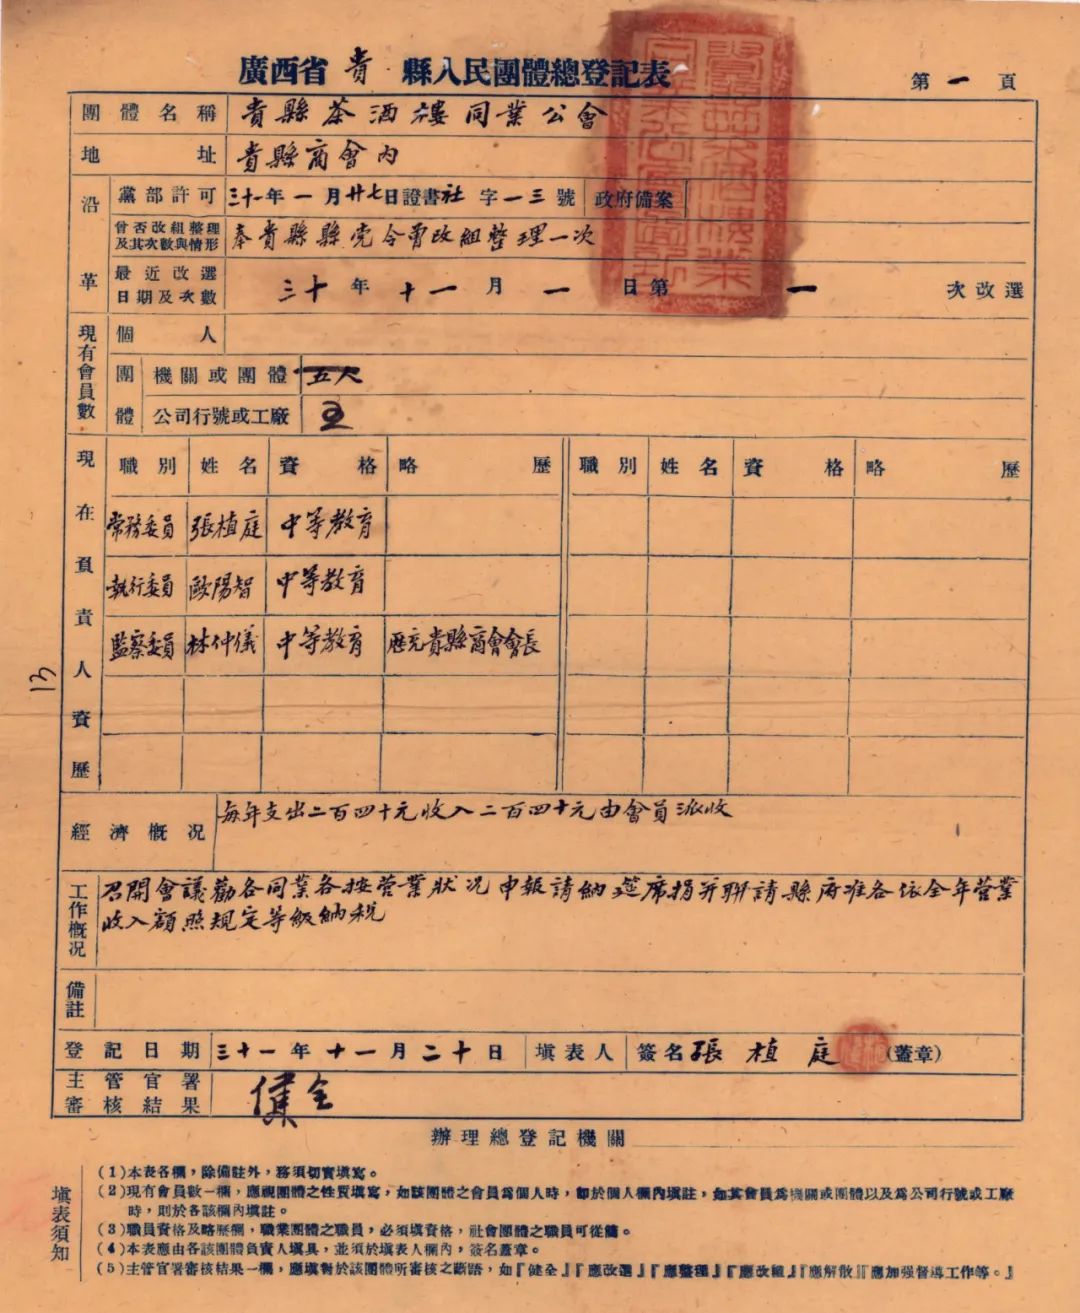 廣西省 貴 縣人民團體總登記表
第 一 頁
團體名稱 貴縣茶酒樓同業公會
地址 貴縣商會內
沿革
黨部許可 三十一年一月廿七日證書社字一三號 政府備案
曾否改組整理及其次數與情形 奉貴縣縣党令曾改組整理一次
最近改選日期及次數 三十年十一月一日第一次改選
現有會員數
個人
團體 機關或團體 五人
公司行號或工廠 五
現在負責人資歷
職別 姓名 資格 略歷 職別 姓名 資格 略歷
常務委員 張植庭 中等教育
執行委員 歐陽智 中等教育
監察委員 林仲儀 中等教育 歷充貴縣商會會長
13
經濟概況 每年支出二百四十元收入二百四十元由會員派收
工作概況 召開會議勸各同業各按營業狀況申報請納筵席捐并聯請縣府准各依全年營業
收入額照規定等級納稅
備註
登記日期 三十一年十一月二十日 填表人 簽名 張植庭 (蓋章)
主管官署審核結果 健全
辦理總登記機關
填表須知
(1)本表各欄，除備註外，務須切實填寫。
(2)現有會員數一欄，應視團體之性質填寫，如該團體之會員爲個人時，卽於個人欄內填註，如其會員爲機關或團體以及爲公司行號或工廠
時，則於各該欄內填註。
(3)職員資格及略歷欄，職業團體之職員，必須填資格，社會團體之職員可從簡。
(4)本表應由各該團體負責人填具，並須於填表人欄內，簽名蓋章。
(5)主管官署審核結果一欄，應填對於該團體所審核之斷語，如『健全』『應改選』『應整理』『應改組』『應解散』『應加強督導工作等。』